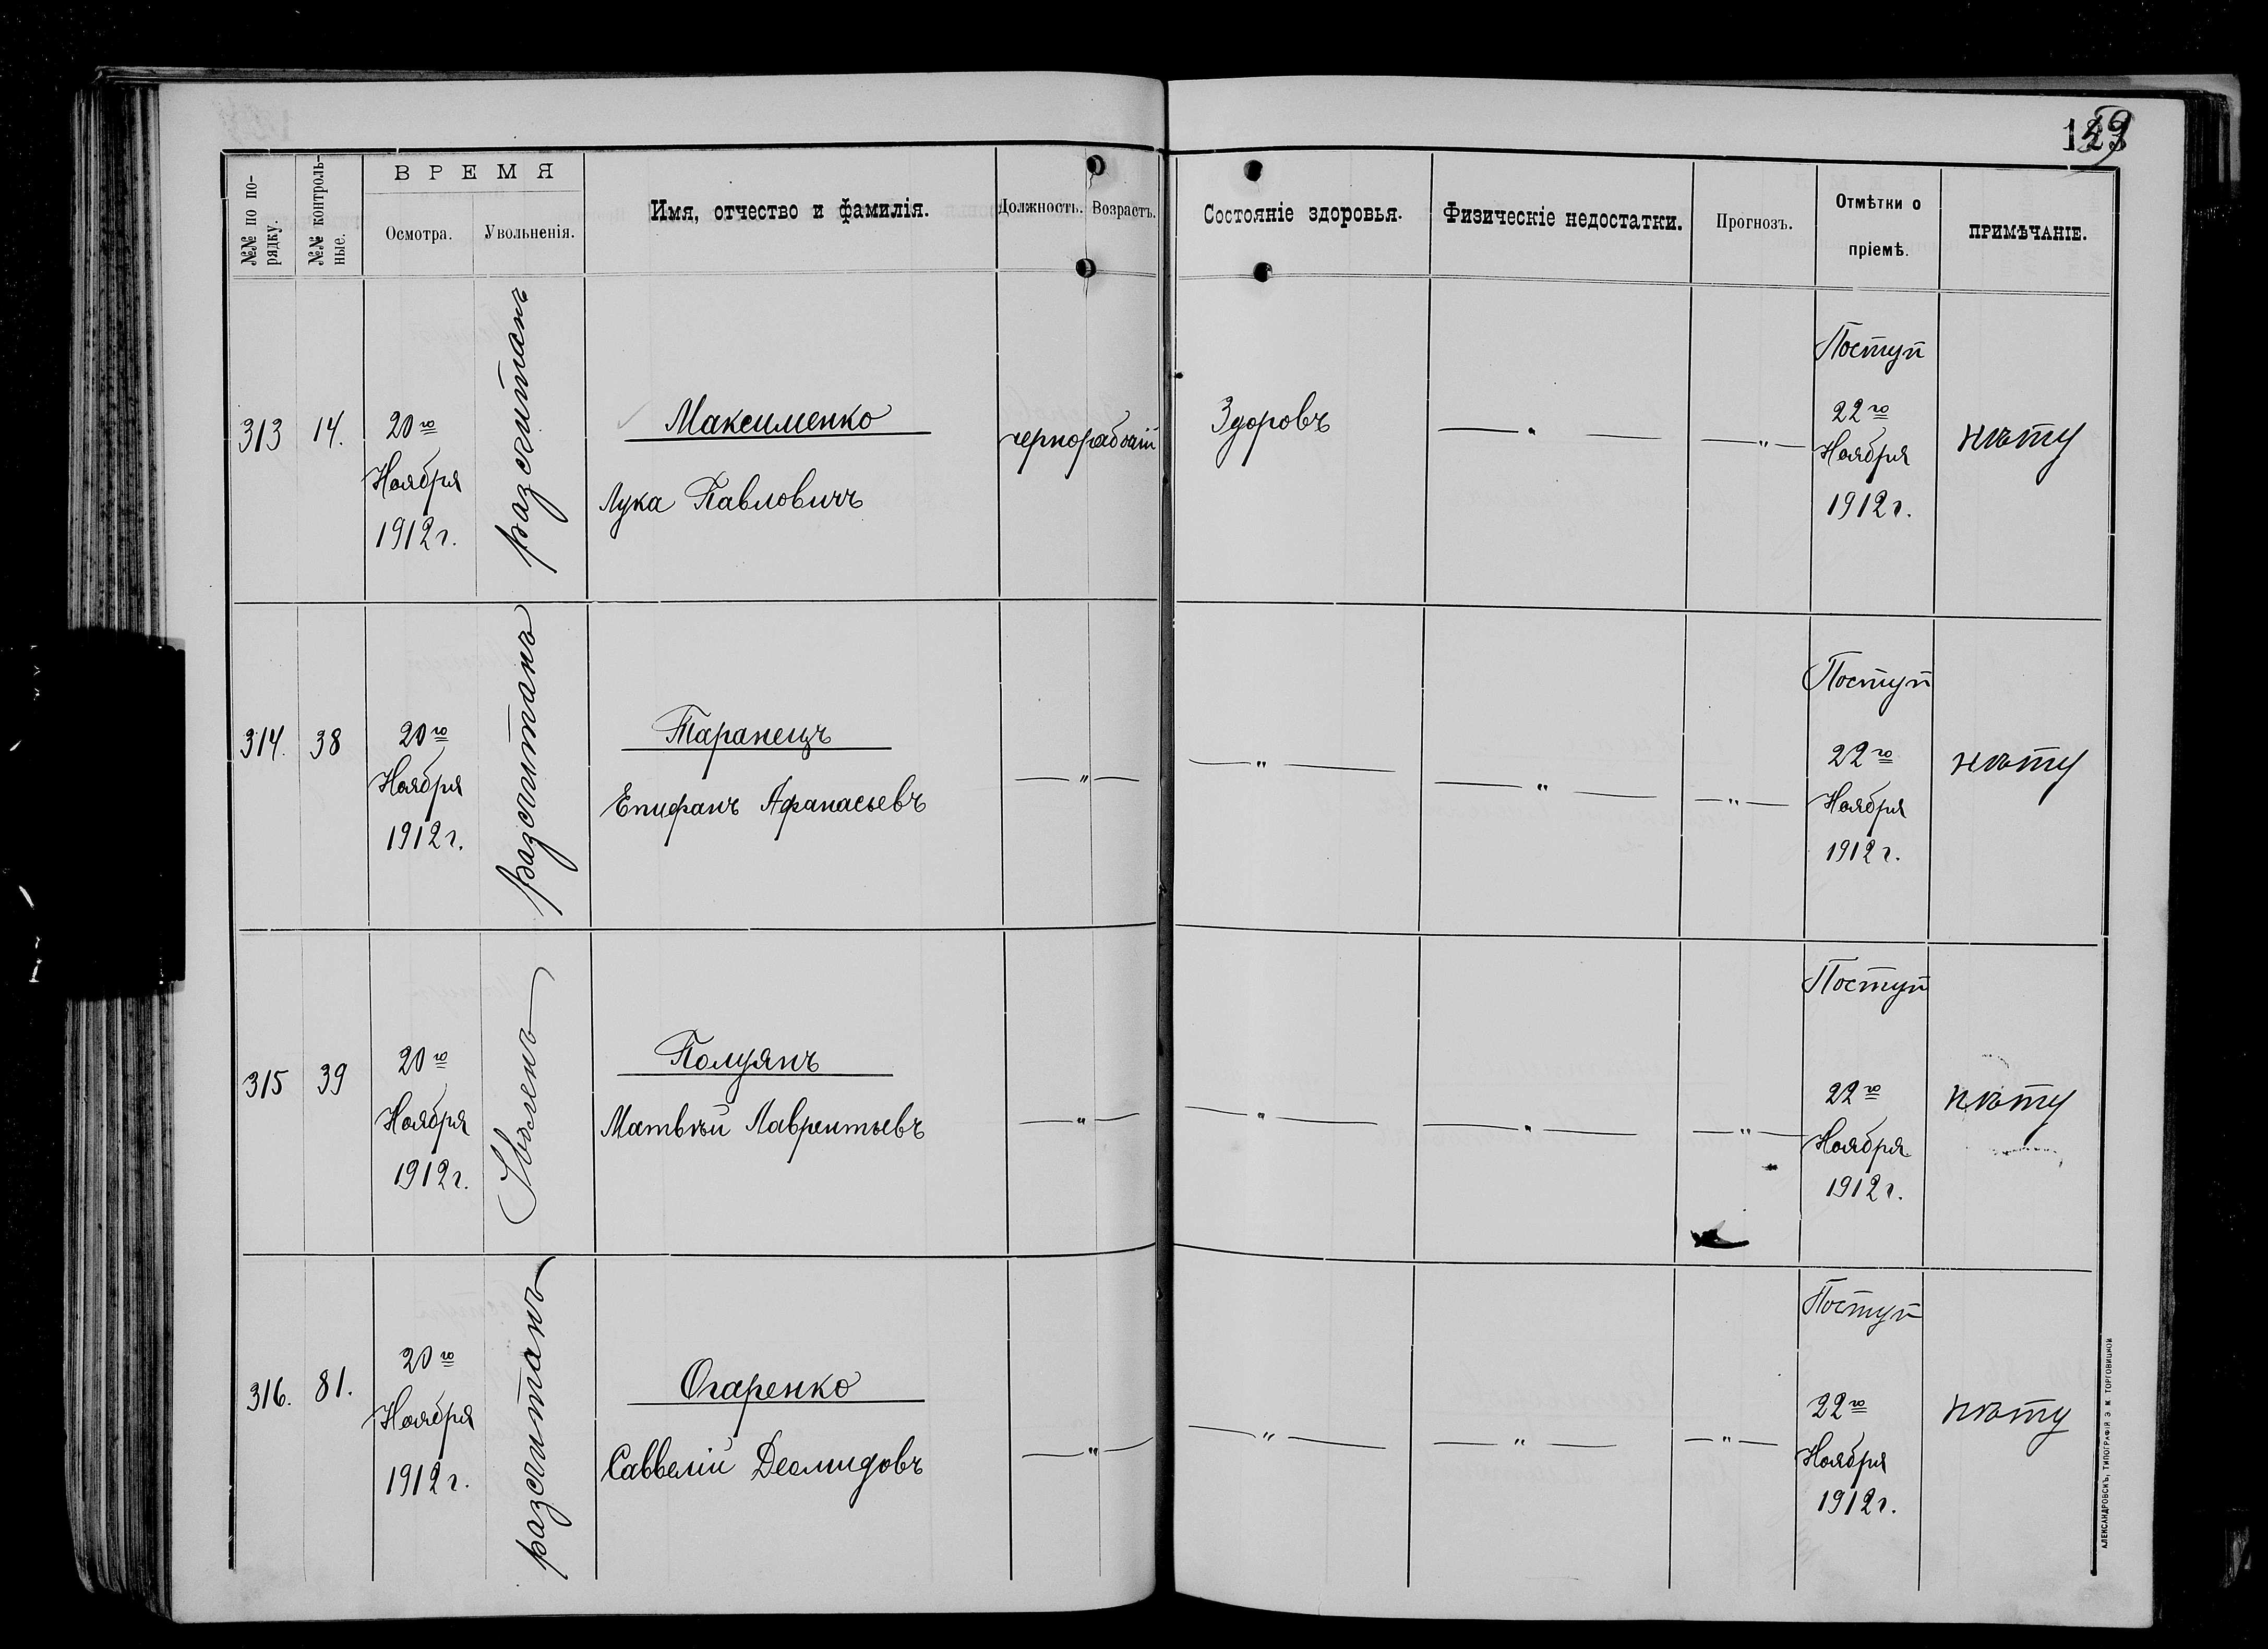 ВРЕМЯ
№№ по по-
рядку.
№№ контроль-
ные.
Осмотра.
Увольненія.
Имя, отчество и фамилія.
Должность.
Возрастъ.
Состояніе здоровья.
Физическіе недостатки.
Прогнозъ.
Отмѣтки о
пріемѣ.
ПРИМѢЧАНІЕ.
313
14.
20го
Ноября
1912 г.
разсчитанъ
Максименко
Лука Павловичъ
чернорабочій
Здоровъ
— " —
— " —
Поступ
22го
Ноября
1912 г.
нѣту
314.
38
20го
Ноября
1912 г.
разсчитанъ
Таранецъ
Епифанъ Афанасьевъ
— " —
— " —
— " —
— " —
Поступ
22го
Ноября
1912 г.
нѣту
315
39
20го
Ноября
1912 г.
Уволенъ
Полуянъ
Матвѣй Лаврентьевъ
— " —
— " —
— " —
— " —
Поступ
22го
Ноября
1912 г.
нѣту
316.
81.
20го
Ноября
1912 г.
разсчитанъ
Огаренко
Саввелій Деомидовъ
— " —
— " —
— " —
— " —
Поступ
22го
Ноября
1912 г.
нѣту
АЛЕКСАНДРОВСКЪ, ТИПОГРАФІЯ Э. М. ТОРГОВИЦКОЙ